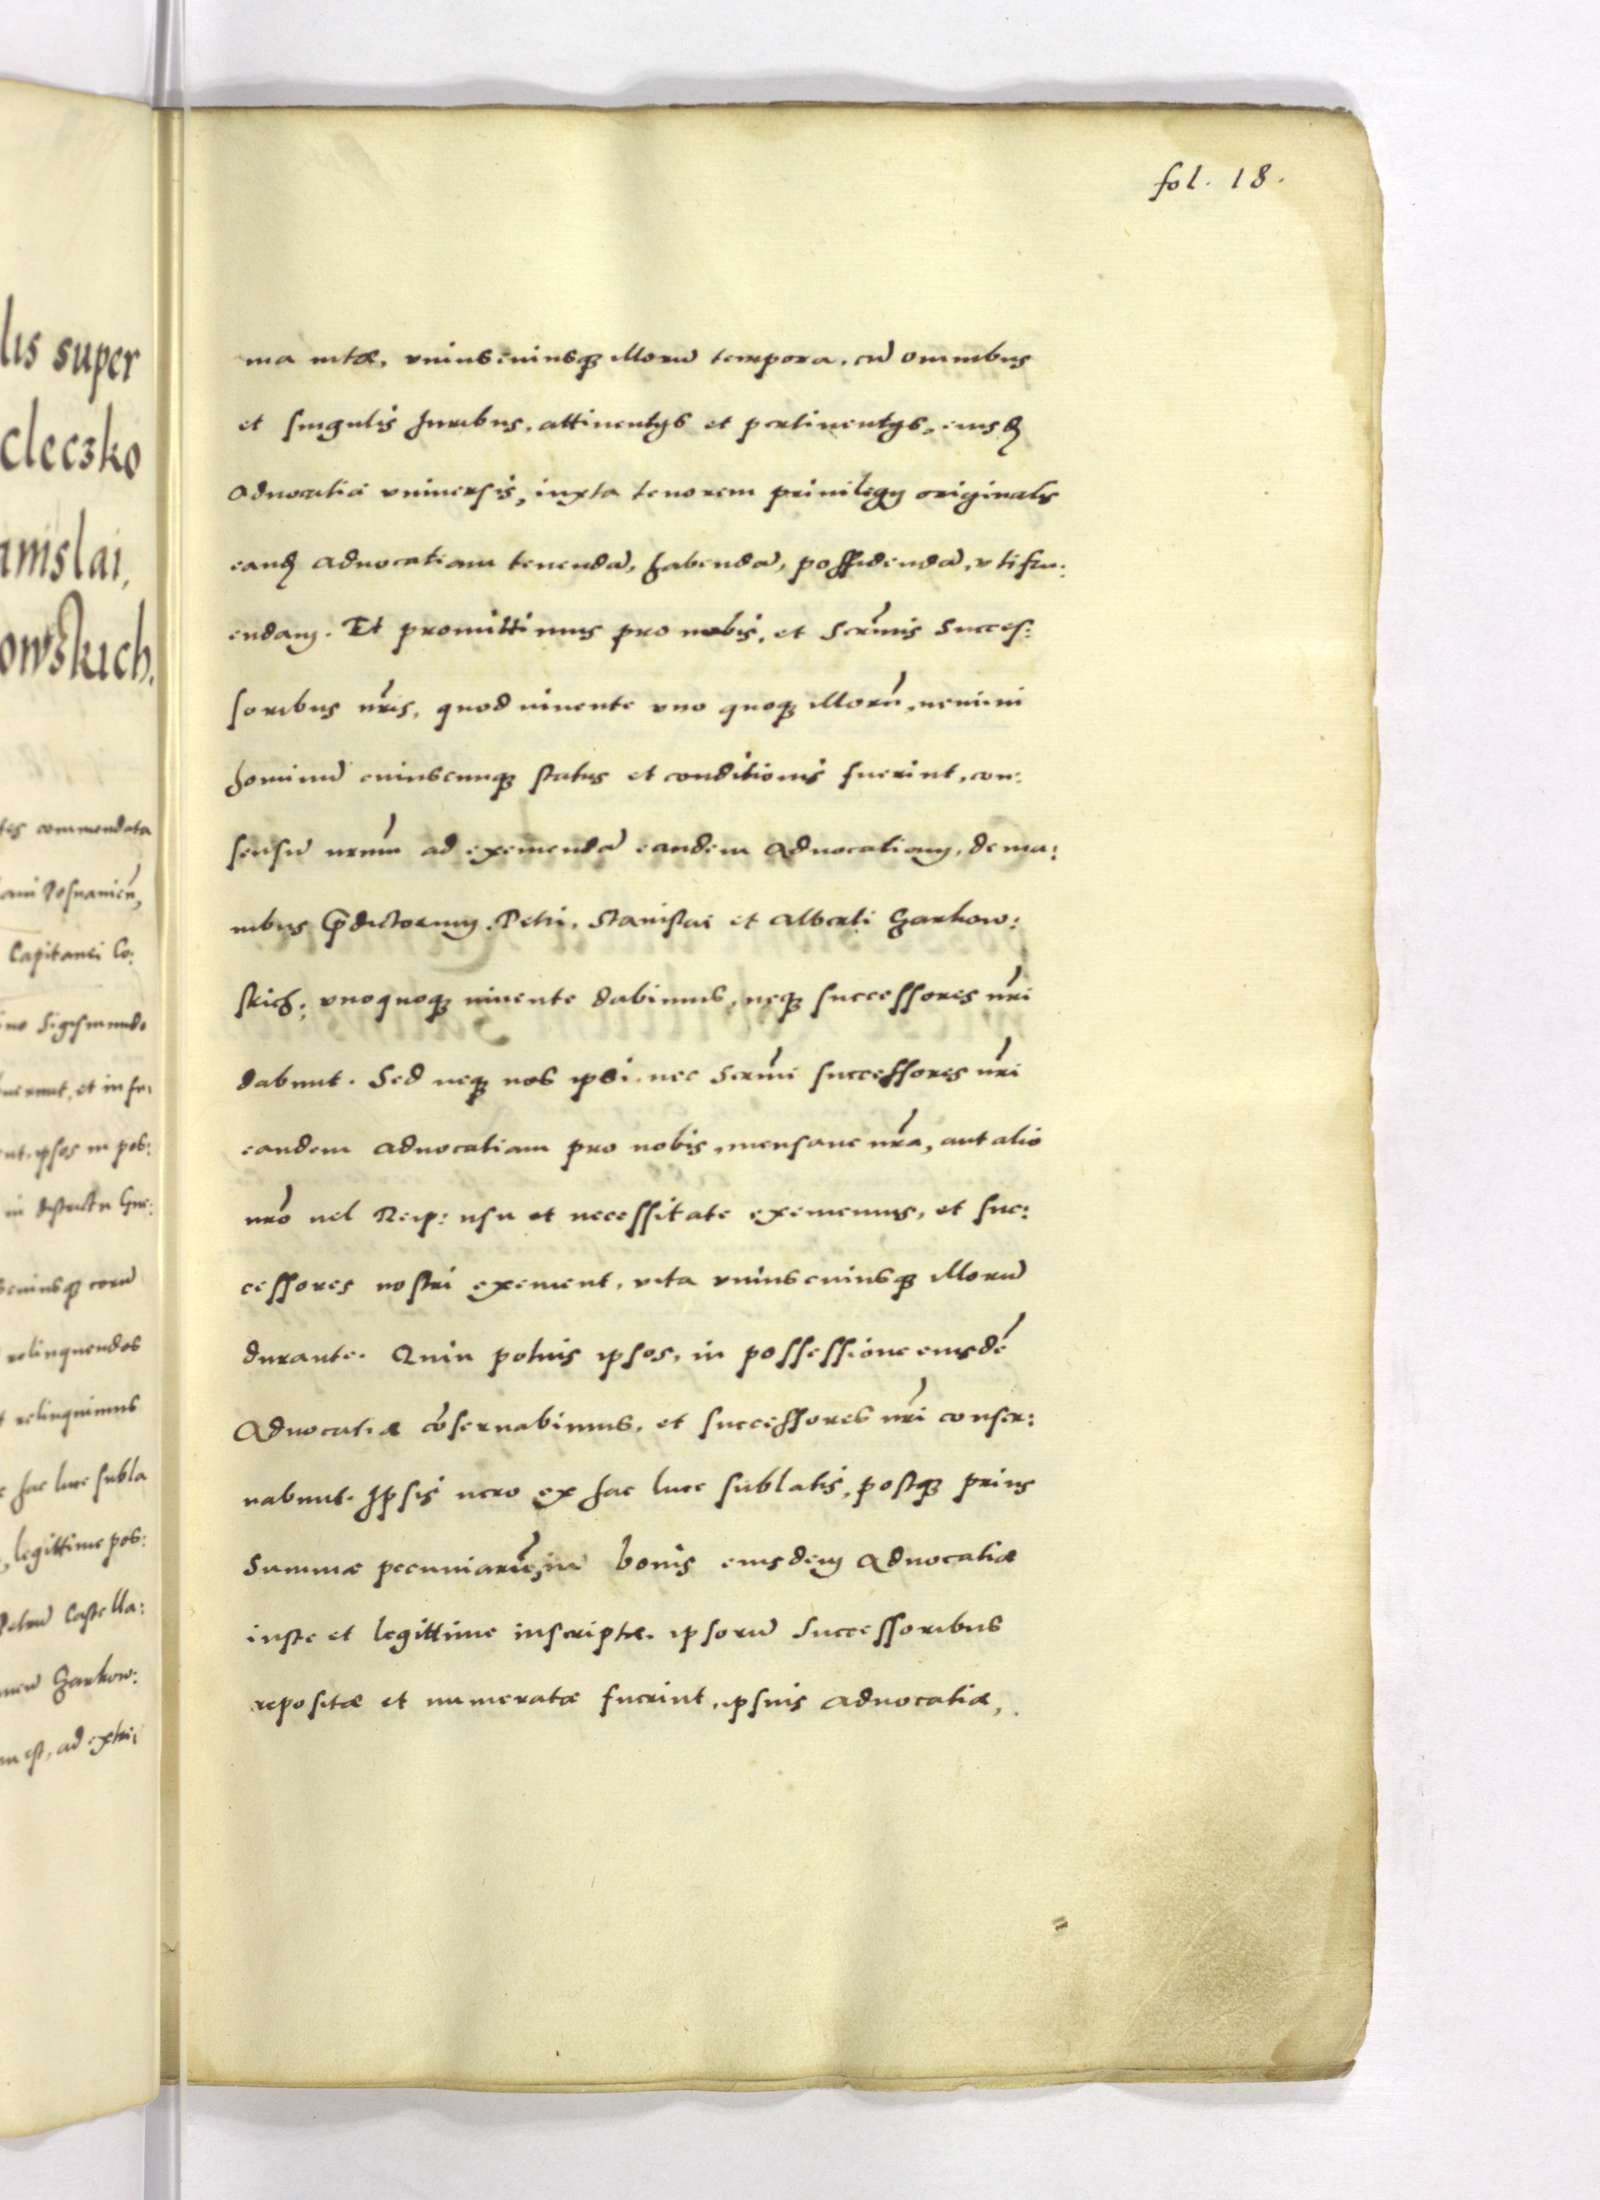 lis super
cleczko
anislai,
owskich.
tes commendata
ani Posnanien̄,
Capitanei Co:
imo Sigismundo
uerunt, et in fu:
ent, ipsos in pos:
in districtu Gne:
scuiusq̃ eorū
relinquendos
t relinquimus
c hac luce subla
, legittime pos:
Petrū Castella:
Czarkow:
m est, ad extre:
fol. 18.
ma uitæ, vniuscuiusq̃ illorū tempora, cū omnibus
et singulis Iuribus, attinentijs et pertinentijs, eiusd̃
Aduocatiæ vniuersis, iuxta tenorem priuilegij originalis
eand̃ Aduocatiam tenendā, habendā, possidendā, vtifru:
endam. Et promittimus pro nobis, et Serm̃is Succes:
soribus nr̃is, quod viuente vno quoq̃ illorū, nemini
hominū cuiuscunq̃ status et conditionis fuerint, con:
sensū nr̃um ad exemendā eandem Aduocatiam, de ma:
nibus p̃dictorum Petri, Stanislai et Alberti Czarkow:
skich, vnoquoq̃ viuente dabimus, neq̃ successores nr̃i
dabunt. Sed neq̃ nos ipsi, nec Serm̃i successores nr̃i
eandem Aduocatiam pro nobis, mensaue nr̃a, aut alio
nr̃o uel Reip: usu et necessitate exememus, et suc:
cessores nostri exement, vita vniuscuiusq̃ illorū
durante. Quin potius ipsos, in possessione eiusdē
Aduocatiæ cōseruabimus, et successores nr̃i conser:
uabunt. Ipsis uero ex hac luce sublatis, postq̃ prius
Summæ pecuniarū, in bonis eiusdem Aduocatiæ
iuste et legittime inscriptæ, ipsorū Successoribus
repositæ et numeratæ fuerint, ipsius Aduocatiæ,